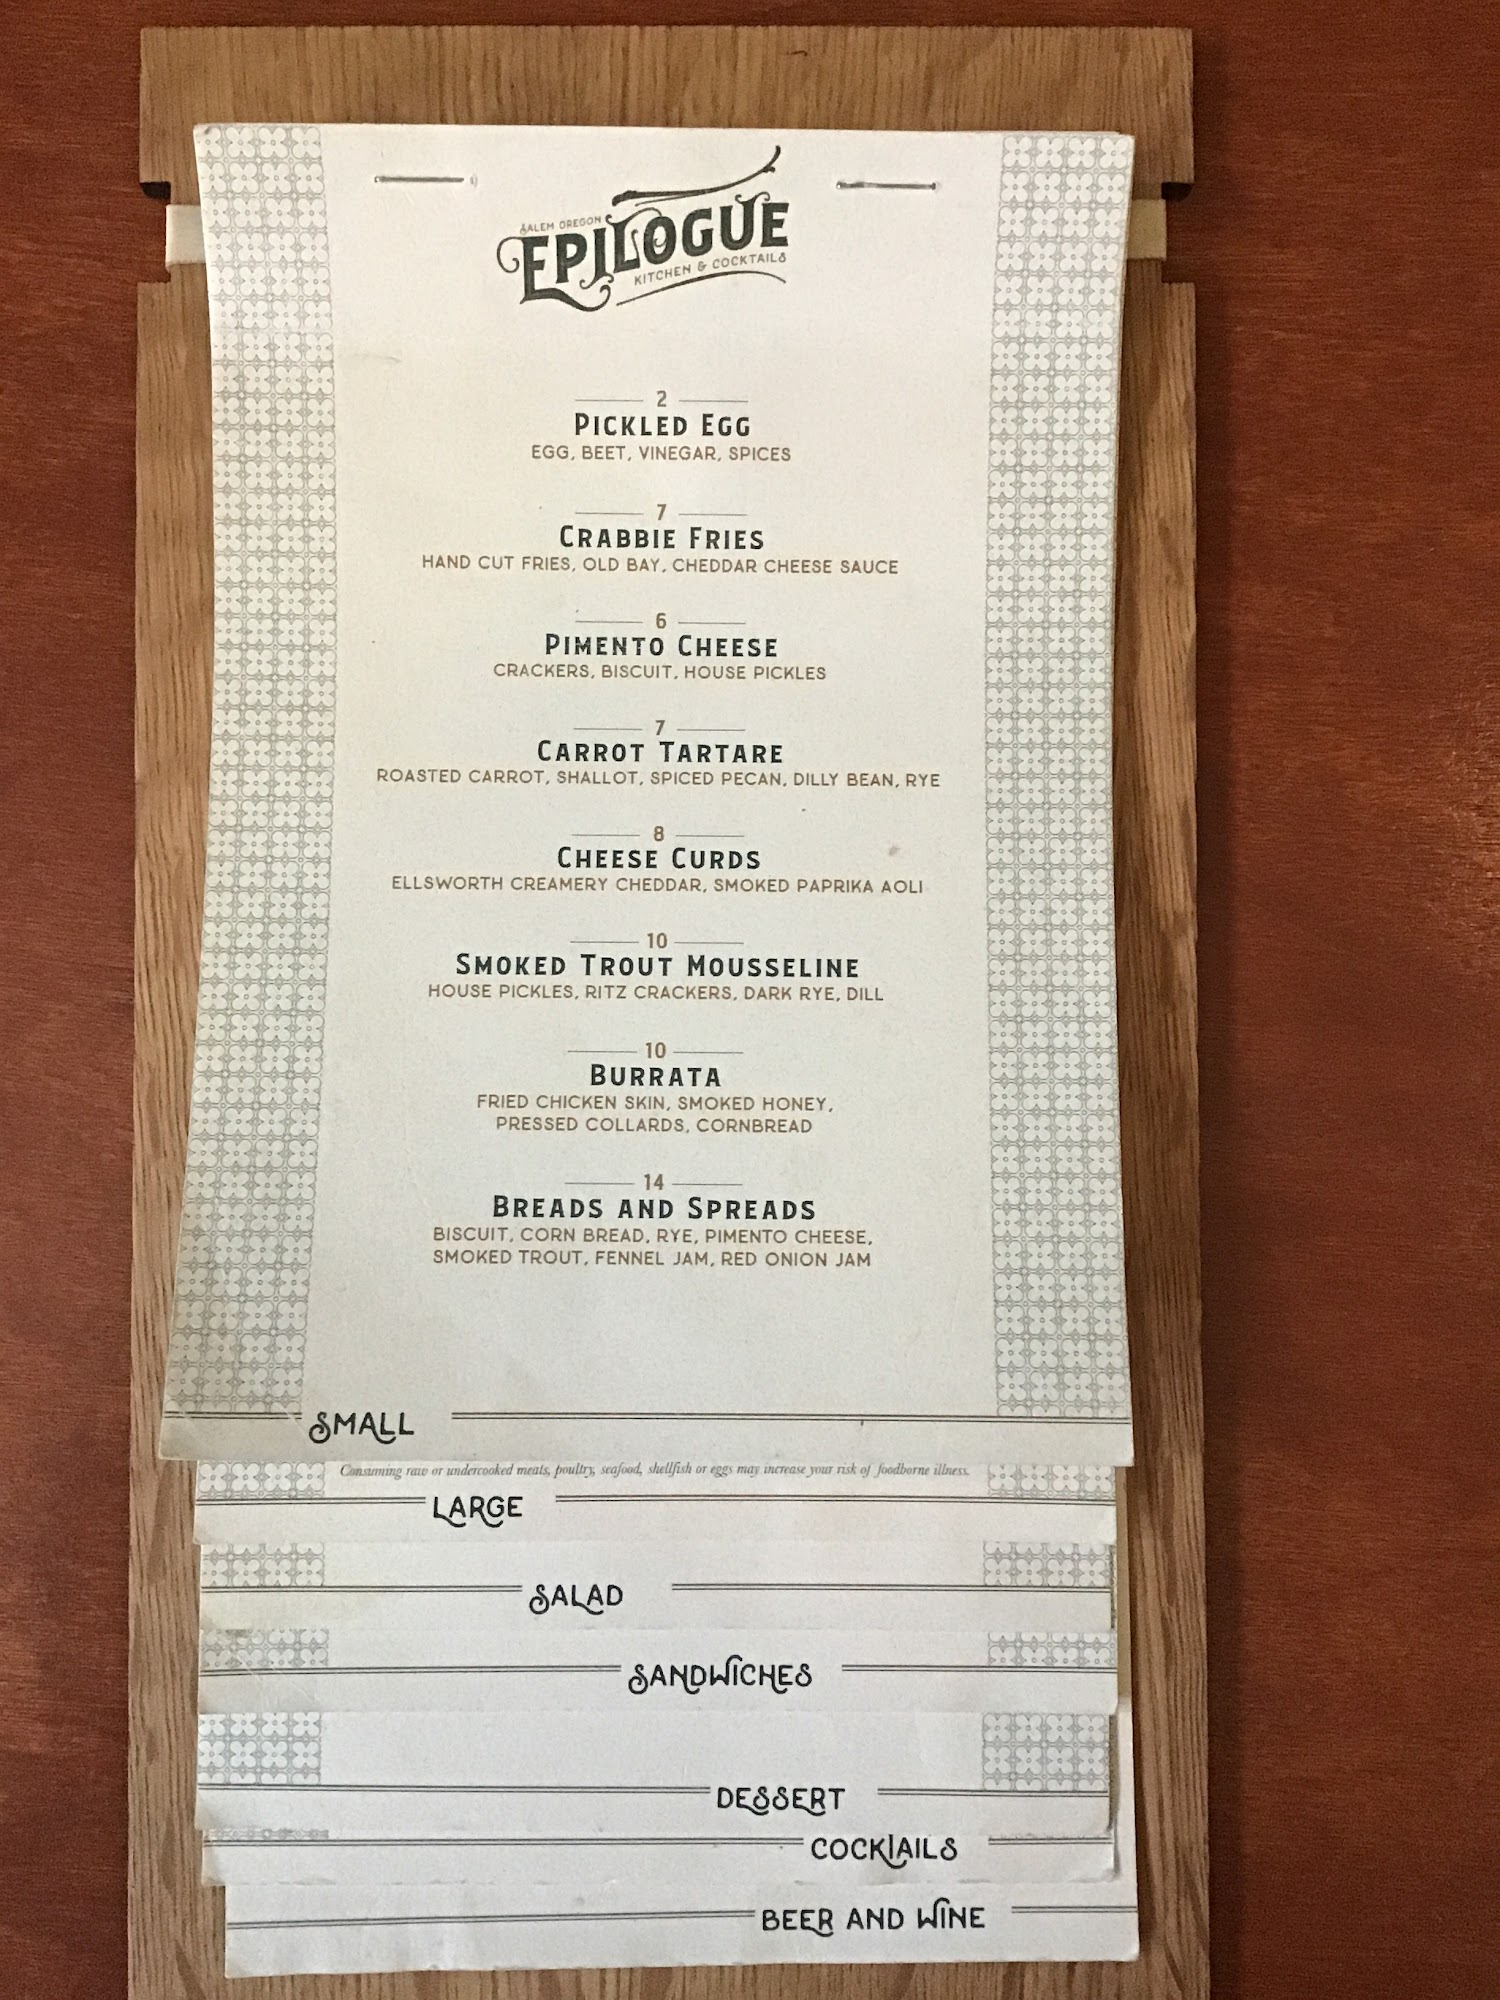 SALEM OREGON
EPILOGUE
KITCHEN & COCKTAILS
2
PICKLED EGG
EGG, BEET, VINEGAR, SPICES
7
CRABBIE FRIES
HAND CUT FRIES, OLD BAY, CHEDDAR CHEESE SAUCE
6
PIMENTO CHEESE
CRACKERS, BISCUIT, HOUSE PICKLES
7
CARROT TARTARE
ROASTED CARROT, SHALLOT, SPICED PECAN, DILLY BEAN, RYE
8
CHEESE CURDS
ELLSWORTH CREAMERY CHEDDAR, SMOKED PAPRIKA AOLI
10
SMOKED TROUT MOUSSELINE
HOUSE PICKLES, RITZ CRACKERS, DARK RYE, DILL
10
BURRATA
FRIED CHICKEN SKIN, SMOKED HONEY,
PRESSED COLLARDS, CORNBREAD
14
BREADS AND SPREADS
BISCUIT, CORN BREAD, RYE, PIMENTO CHEESE,
SMOKED TROUT, FENNEL JAM, RED ONION JAM
SMALL
Consuming raw or undercooked meats, poultry, seafood, shellfish or eggs may increase your risk of foodborne illness.
LARGE
SALAD
SANDWICHES
DESSERT
COCKTAILS
BEER AND WINE